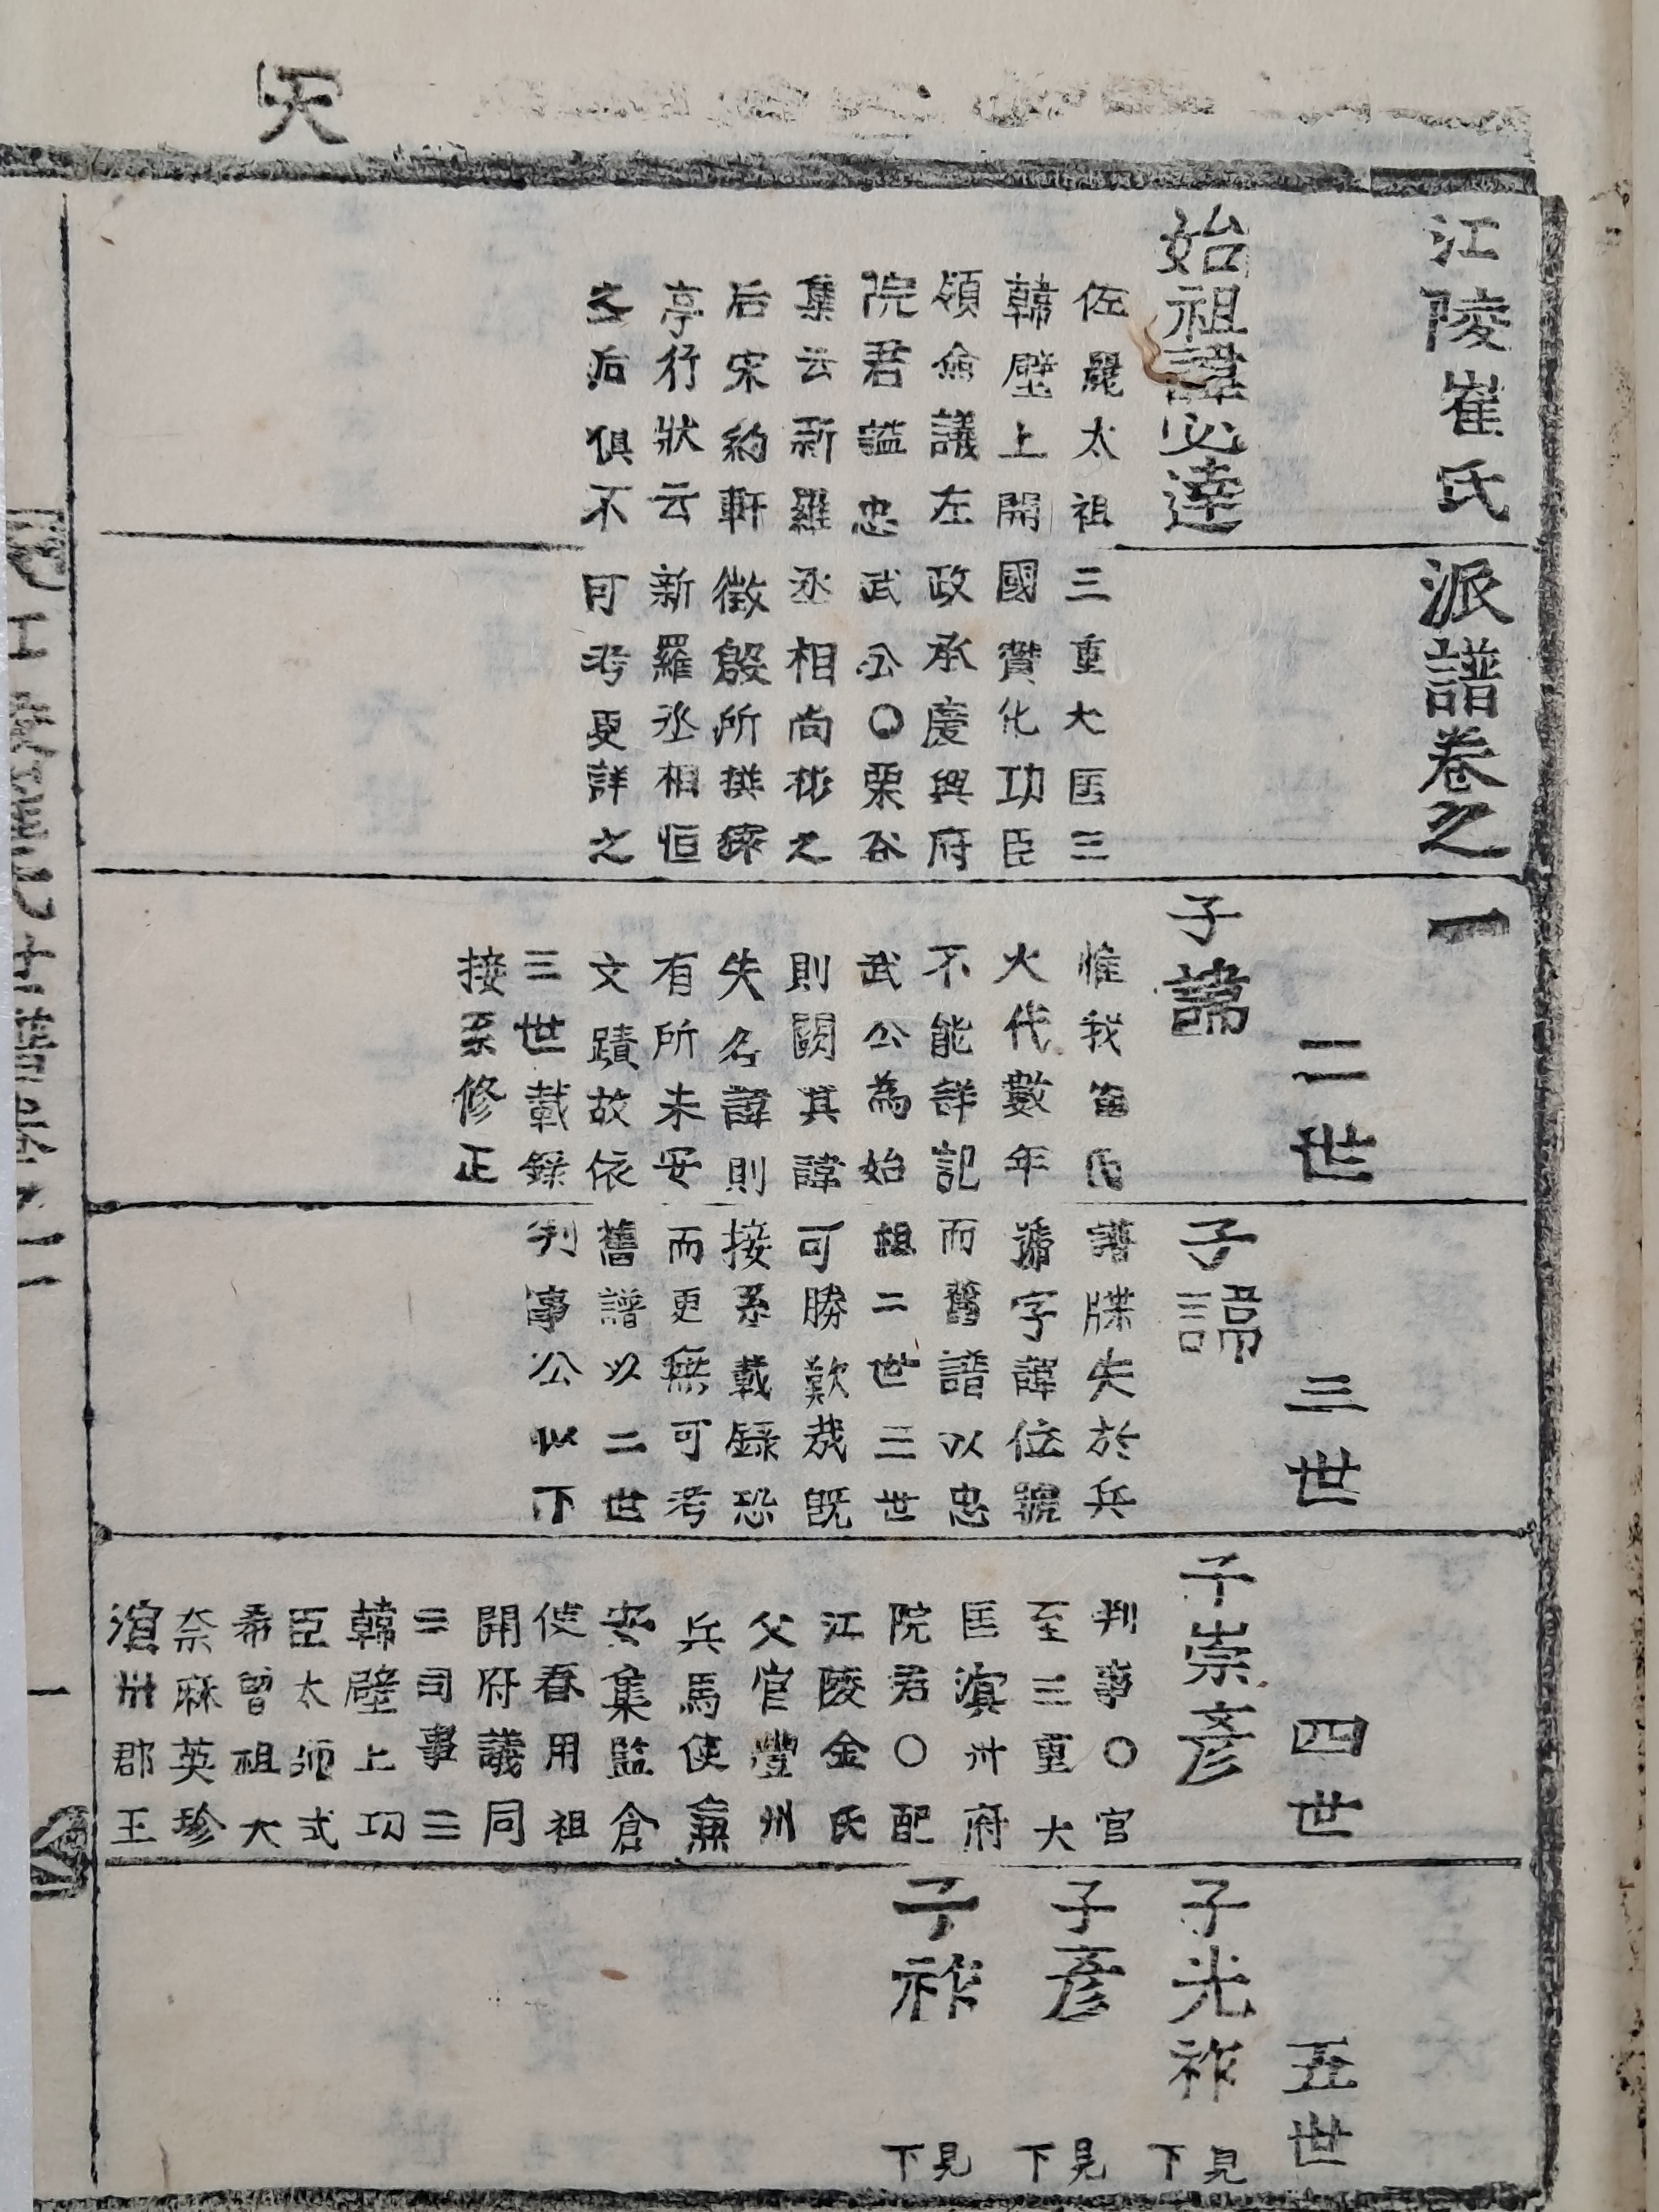 天
江陵崔氏派譜卷之一
始祖諱必達
佐麗太祖三重大匡三
韓壁上開國贊化功臣
領僉議左政承慶興府
院君諡忠武公○栗谷
集云新羅丞相尚彬之
后宋約軒徵殷所撰錦
亭行狀云新羅丞相恒
之后俱不可考更詳之
二世
子諱
三世
子諱
惟我崔氏譜牒失於兵
火代數年遞字諱位號
不能詳記而舊譜以忠
武公為始祖二世三世
則闕其諱可勝歎哉既
失名諱則接系載錄恐
有所未安而更無可考
文蹟故依舊譜以二世
三世載錄判事公以下
接系修正
四世
子崇彥
判事○官
至三重大
匡溟州府
院君○配
江陵金氏
父官豐州
兵馬使兼
安集監倉
使春用祖
開府議同
三司事三
韓壁上功
臣太師式
希曾祖大
奈麻英珍
溟州郡王
五世
子光祚 見下
子彥 見下
子祚 見下
一